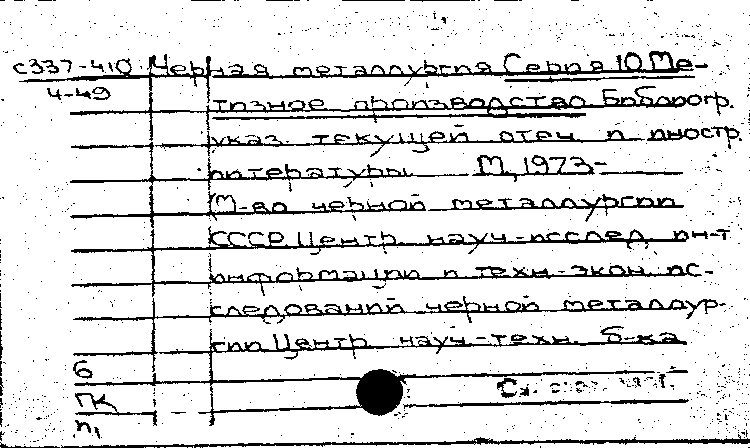 с337-410 Черная металлургия Серия 10 Ме-
4-49 тизное производство Библиогр.
указ. текущей отеч. и иностр.
литературы М., 1973-
(М-во черной металлургии
СССР. Центр. науч.-исслед. ин-т
информации и техн.-экон. ис-
следований черной металлур-
гии. Центр. науч.-техн. б-ка
6
ПК
п,